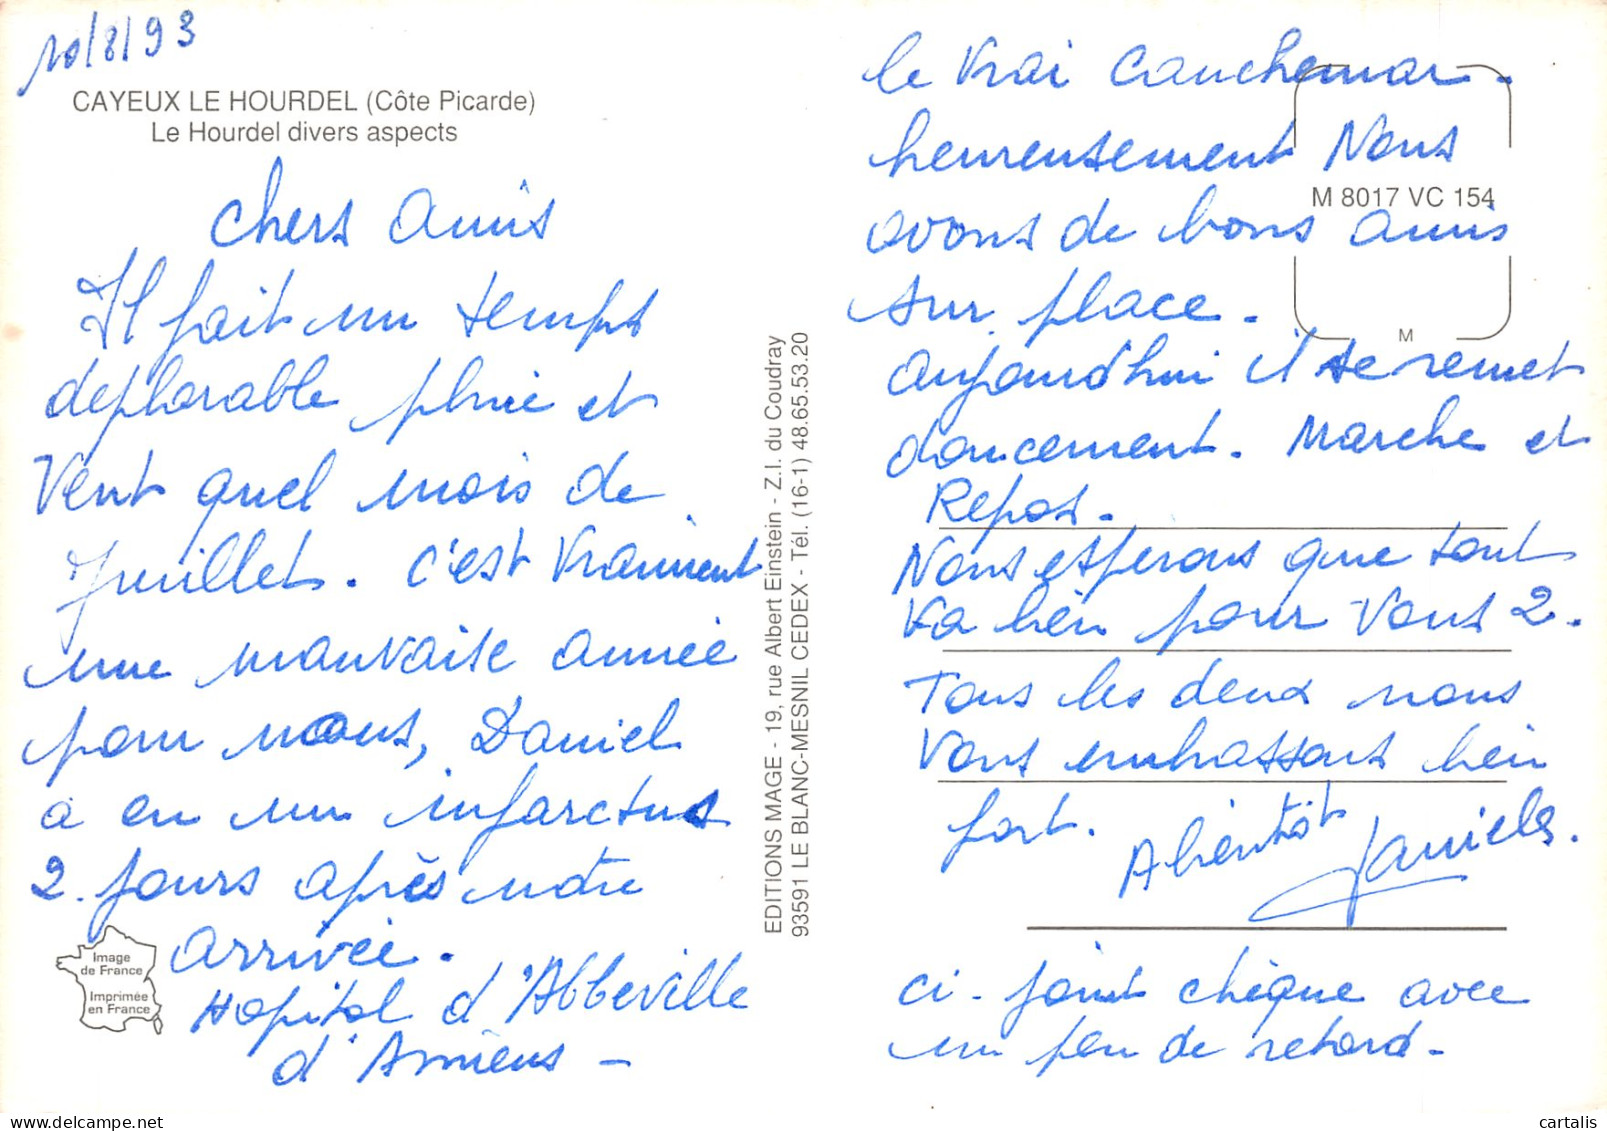 10/8/93
CAYEUX LE HOURDEL (Côte Picarde)
Le Hourdel divers aspects
chers amis
Il fait un temps
deplorable pluie et
Vent quel mois de
Juillet. c'est vraiment
une mauvaise année
pour nous, Daniel
a eu un infarctus
2. jours après notre
arrivée.
Hopital d'Abbeville
d'Amiens -
Image
de France
Imprimée
en France
EDITIONS MAGE - 19, rue Albert Einstein - Z.I. du Coudray
93591 LE BLANC-MESNIL CEDEX - Tél. (16-1) 48.65.53.20
le vrai cauchemar.
heureusement Nous
M 8017 VC 154
avons de bons amis
sur place.
M
aujourd'hui il se remet
doucement. Marche et
Repos.
Nous esperons que tout
va bien pour vous 2.
Tous les deux nous
Vous embrassons bien
fort.
A bientôt
ci-joint chèque avec
un peu de retard-
cartalis
delcampe.net